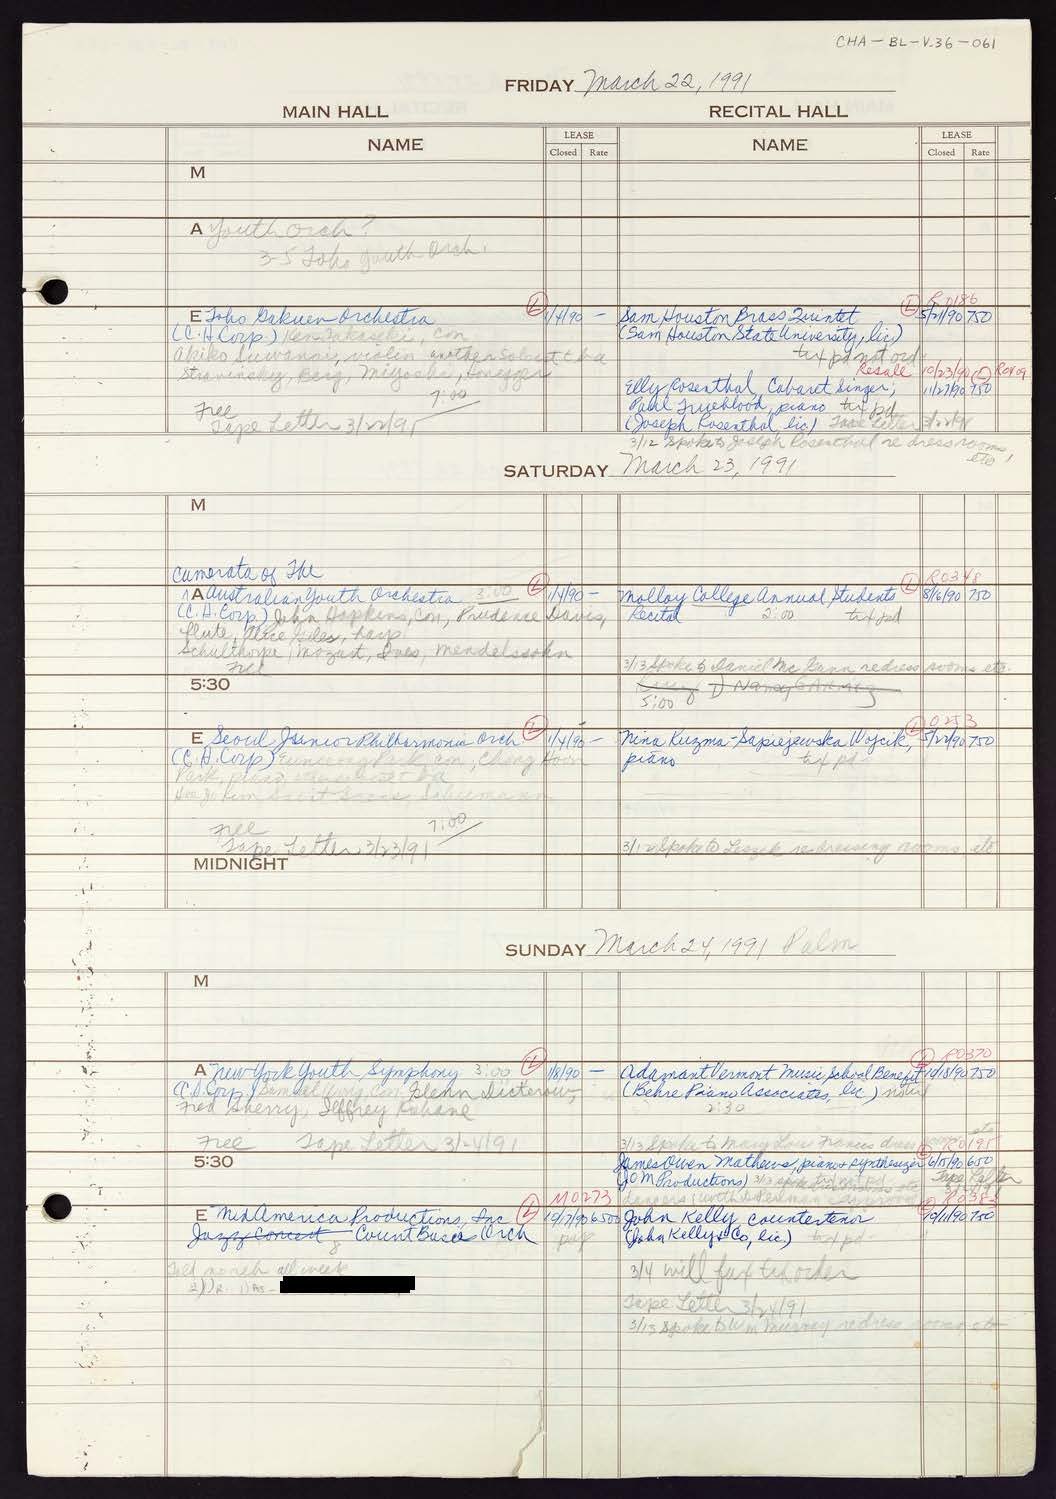 CHA-BL-V.36-061
FRIDAY March 22, 1991
MAIN HALL
RECITAL HALL
NAME
LEASE
Closed Rate
NAME
LEASE
Closed Rate
M
A Youth Orch?
3-5 Toho Youth Orch.
E Toho Gakuen Orchestra L 1/4/90 -
(C.H. Corp.) Ken Takaseki, Con
Akiko Suwanai, violin another Soloist t.b.a
Stravinsky, Berg, Miyoshi, Honegger
7:00
Free
Tape Letter 3/22/91
R0186
Sam Houston Brass Quintet L 5/21/90 750
(Sam Houston State University, lic)
tix pd not ord
Resale 10/23/90 L R0409
Elly Rosenthal, Cabaret Singer; 11/27/90 750
Paul Trueblood, piano tix pd
(Joseph Rosenthal, lic) Tape Letter 3/22/91
3/12 Spoke to Joseph Rosenthal re dress rooms, etc
SATURDAY March 23, 1991
M
Camerata of The
A Australian Youth Orchestra 3:00 L 1/4/90 -
(C.H. Corp) John Hopkins, Con, Prudence Davis,
flute, Alice Giles, harp
Schulthorpe, Mozart, Ives, Mendelssohn
Free
R0348
Molloy College Annual Students L 8/6/90 750
Recital 2:00 tix pd
3/13 Spoke to Daniel McGann re dress rooms etc.
5:30
5:00
E Seoul Junior Philharmonic Orch L 1/4/90 -
(C.H. Corp) Park, con, Chong Hoon
Park, piano,
Free 7:00
Tape Letter 3/23/91
0253
Nina Kuzma-Sapiejewska Wojcik, L 5/22/90 750
piano tix pd-
3/12 Spoke to Leszek re dressing rooms, etc
MIDNIGHT
SUNDAY March 24, 1991 Palm
M
A New York Youth Symphony 3:00 L 1/8/90 -
(C.H. Corp) Samuel Wong, Con, Glenn Dicterow,
Fred Sherry, Jeffrey Kahane
Free Tape Letter 3/24/91
R0370
Adamant Vermont Music School Benefit L 10/18/90 750
(Behre Piano Associates, lic)
2:30
3/13 Spoke to Mary Lou Francis dress rooms etc
5:30
R0195
James Owen Mathews, piano + synthesizer L 6/15/90 650
(JOM Productions) Tape Letter
M0273
E NiNAmerica Productions, Inc L 10/17/90 6500
Jazz Concert Count Basie Orch
R0383
John Kelly countertenor L 10/11/90 750
(John Kelly & Co, lic) tix pd-
3/4 will fax tix order
Tape Letter 3/24/91
3/13 Spoke to Wm Murray re dress rooms etc